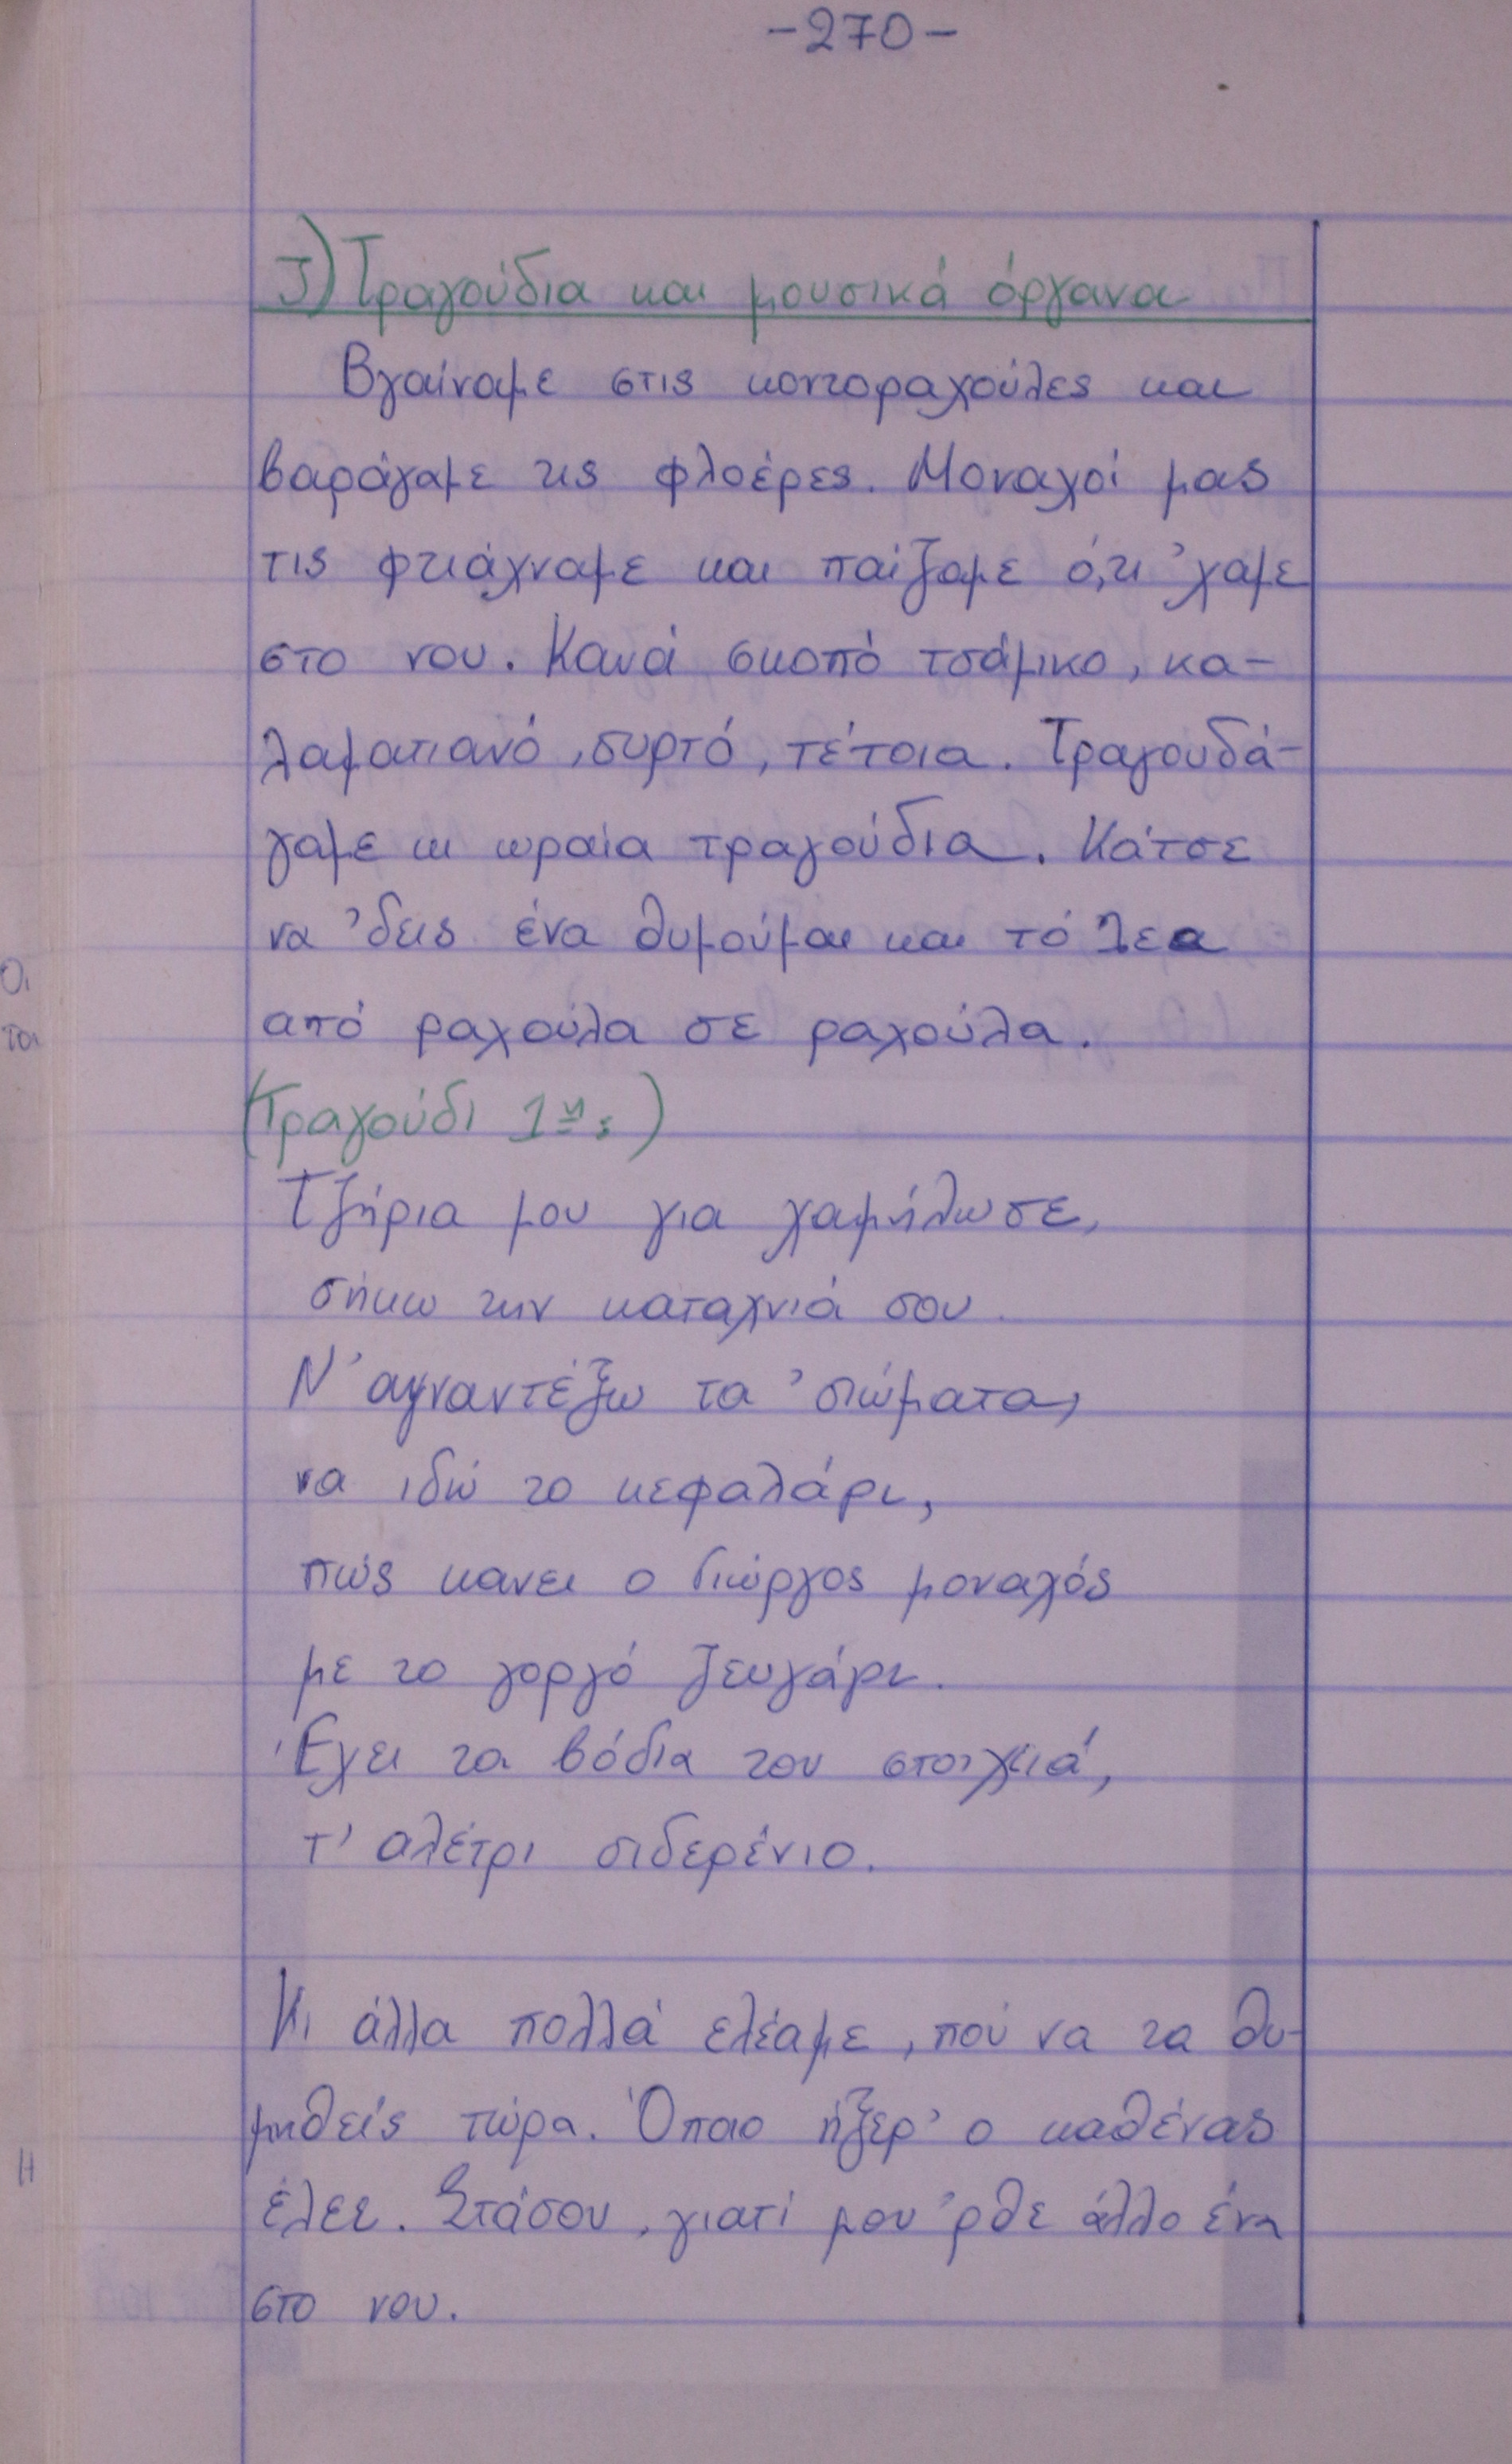 -270-
J) Τραγούδια και μουσικά όργανα
Βγαίναμε στις κοντοραχούλες και
βαράγαμε τις φλοέρες. Μοναχοί μας
τις φτιάχναμε και παίζαμε ό,τι 'χαμε
στο νου. Κανά σκοπό τσάμικο, κα-
λαματιανό, συρτό, τέτοια. Τραγουδά-
γαμε κι ωραία τραγούδια. Κάτσε
να 'δεις ένα θυμούμαι και τό λεα
από ραχούλα σε ραχούλα.
(Τραγούδι 1ης)
Τζήρια μου για χαμήλωσε,
σήκω την καταχνιά σου.
Ν' αγναντέξω τα 'σιώματα,
να ιδώ το κεφαλάρι,
πώς κανει ο Γιώργος μοναχός
με το γοργό ζευγάρι.
Έχει τα βόδια του στοιχειά,
τ' αλέτρι σιδερένιο.
Κι άλλα πολλά ελέαμε, πού να τα θυ-
μηθείς τώρα. Όποιο ήξερ' ο καθένας
έλεε. Στάσου, γιατί μου 'ρθε άλλο ένα
στο νου.
Οι
τα
Η